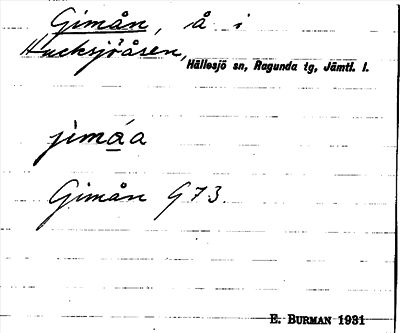 Gimån, å i
Hucksjöåsen,
Hällesjö sn, Ragunda tg, Jämtl. l.
jimáa
Gimån G73.
E. BURMAN 1931